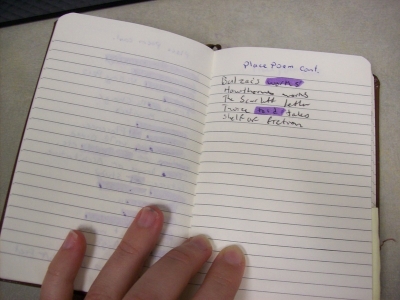 Place Poem Cont.
Balzac's works
Hawthornes works
The Scarlett letter
Twice told tales
Shelf of fiction